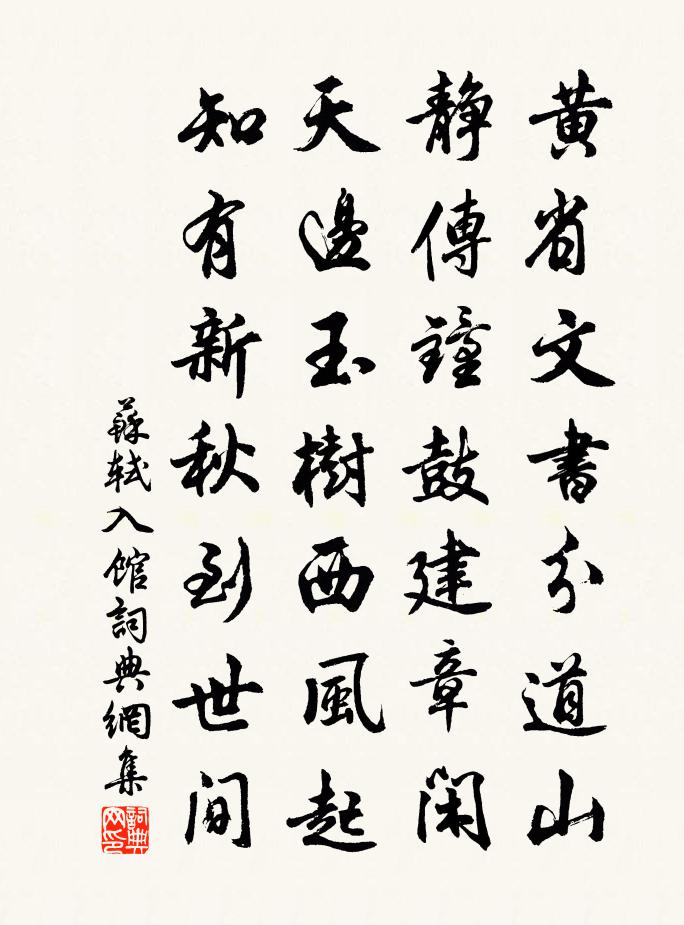 黄省文書分道山
靜傳鐘鼓建章閑
天邊玉樹西風起
知有新秋到世間
蘇軾入館詞典網集
詞典網印